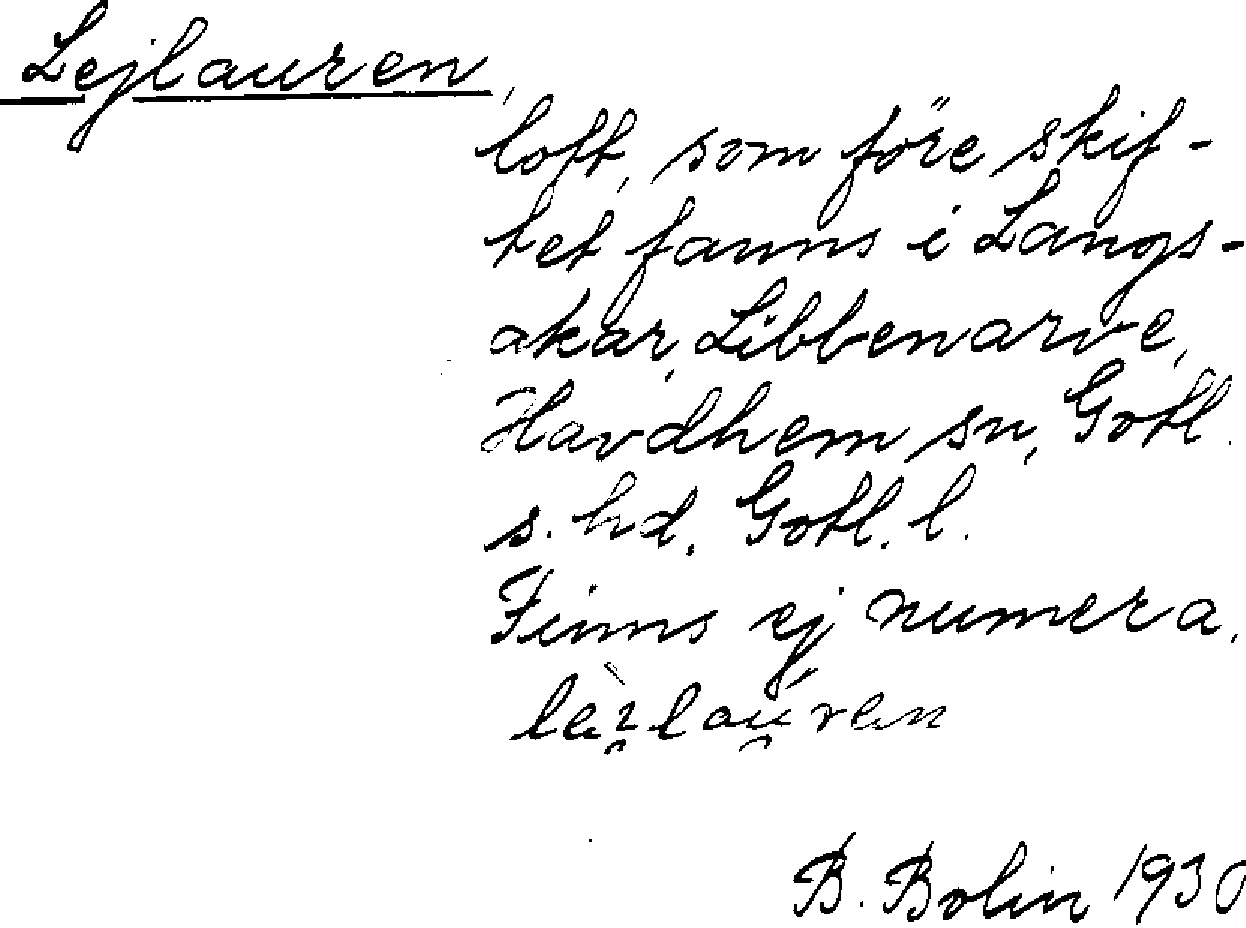 Lejlauren,
toft, som före skif-
tet fanns i Langs-
akar, Libbenarve,
Havdhem sn, Gotl.
s. hd. Gotl. l.
Finns ej numera.
B. Bolin 1930